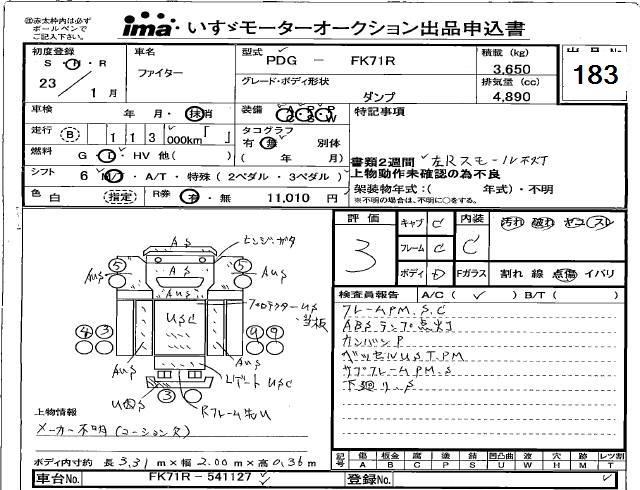 ㊟赤太枠内は必ず
ボールペンで
ご記入下さい。
ima いすゞモーターオークション出品申込書
初度登録
S・H・R
23 / 1 月
車名
ファイター
型式
PDG － FK71R
グレード・ボディ形状
ダンプ
積載 (kg)
3,650
排気量 (cc)
4,890
出品No
183
車検 年・月・抹消
装備 A/C P/S P/W
特記事項
走行 B 113 000km「 」
タコグラフ
有 無 別体
( 年 月)
燃料 G・D・HV 他( )
書類2週間 左Rスモールホヤ欠
上物動作未確認の為不良
シフト 6 M/T・A/T・特殊(2ペダル・3ペダル)
架装物年式:( 年式)・不明
※不明の場合は、不明に○をする。
色 白 指定 R券 有・無 11,010 円
評価 3
キャブ C
フレーム C
ボディ D
内装 C
汚れ 破れ ヤコゲ スレ
Fガラス 割れ 線 点傷 イバリ
検査員報告 A/C( ✓ ) B/T( )
フレームPM.S.C
ABSランプ点灯
カンバンP
ベッセルUS.T.PM
サブフレームPM.S
下廻り.S
AS
ヒンジガタ
5
5
AUS
AUS
AUS
プロテクターUS
USC
4 3
9 9
AUS
AUS
LゲートUSC
3
上物情報
メーカー不明(コーション欠)
ボディ内寸約 長 3.31 m×幅 2.00 m×高 0.36 m
記号 傷 A 板金 B 腐 C 塗 P 錆 S 凹凸曲 U 波 W 穴 H 跡 M レツ割 T
車台No. FK71R－541127
登録No.